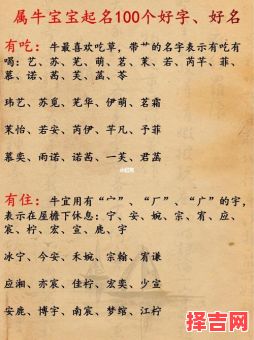 属牛宝宝起名100个好字、好名
有吃：牛最喜欢吃草，带艹的名字表示有吃有
喝：艺、苏、芜、萌、茗、莱、若、芮、芊、菲、
慕、诺、茜、芙、菡、苓
玮艺、苏觅、芜华、伊萌、若霜
茉怡、若安、芮伊、芊凡、予菲
慕奕、雨诺、诺茜、一芙、君菡
有住：牛宜用有“宀”、“厂”、“广”的字，
表示在屋檐下休息：宁、安、婉、宗、宥、应、
宸、柠、宏、宣、鹿、宇
冰宁、今安、禾婉、宗翰、宥谦
应湘、亦宸、佳柠、宏彬、少宣
安鹿、博宇、南宸、梦绾、江柠
择吉网